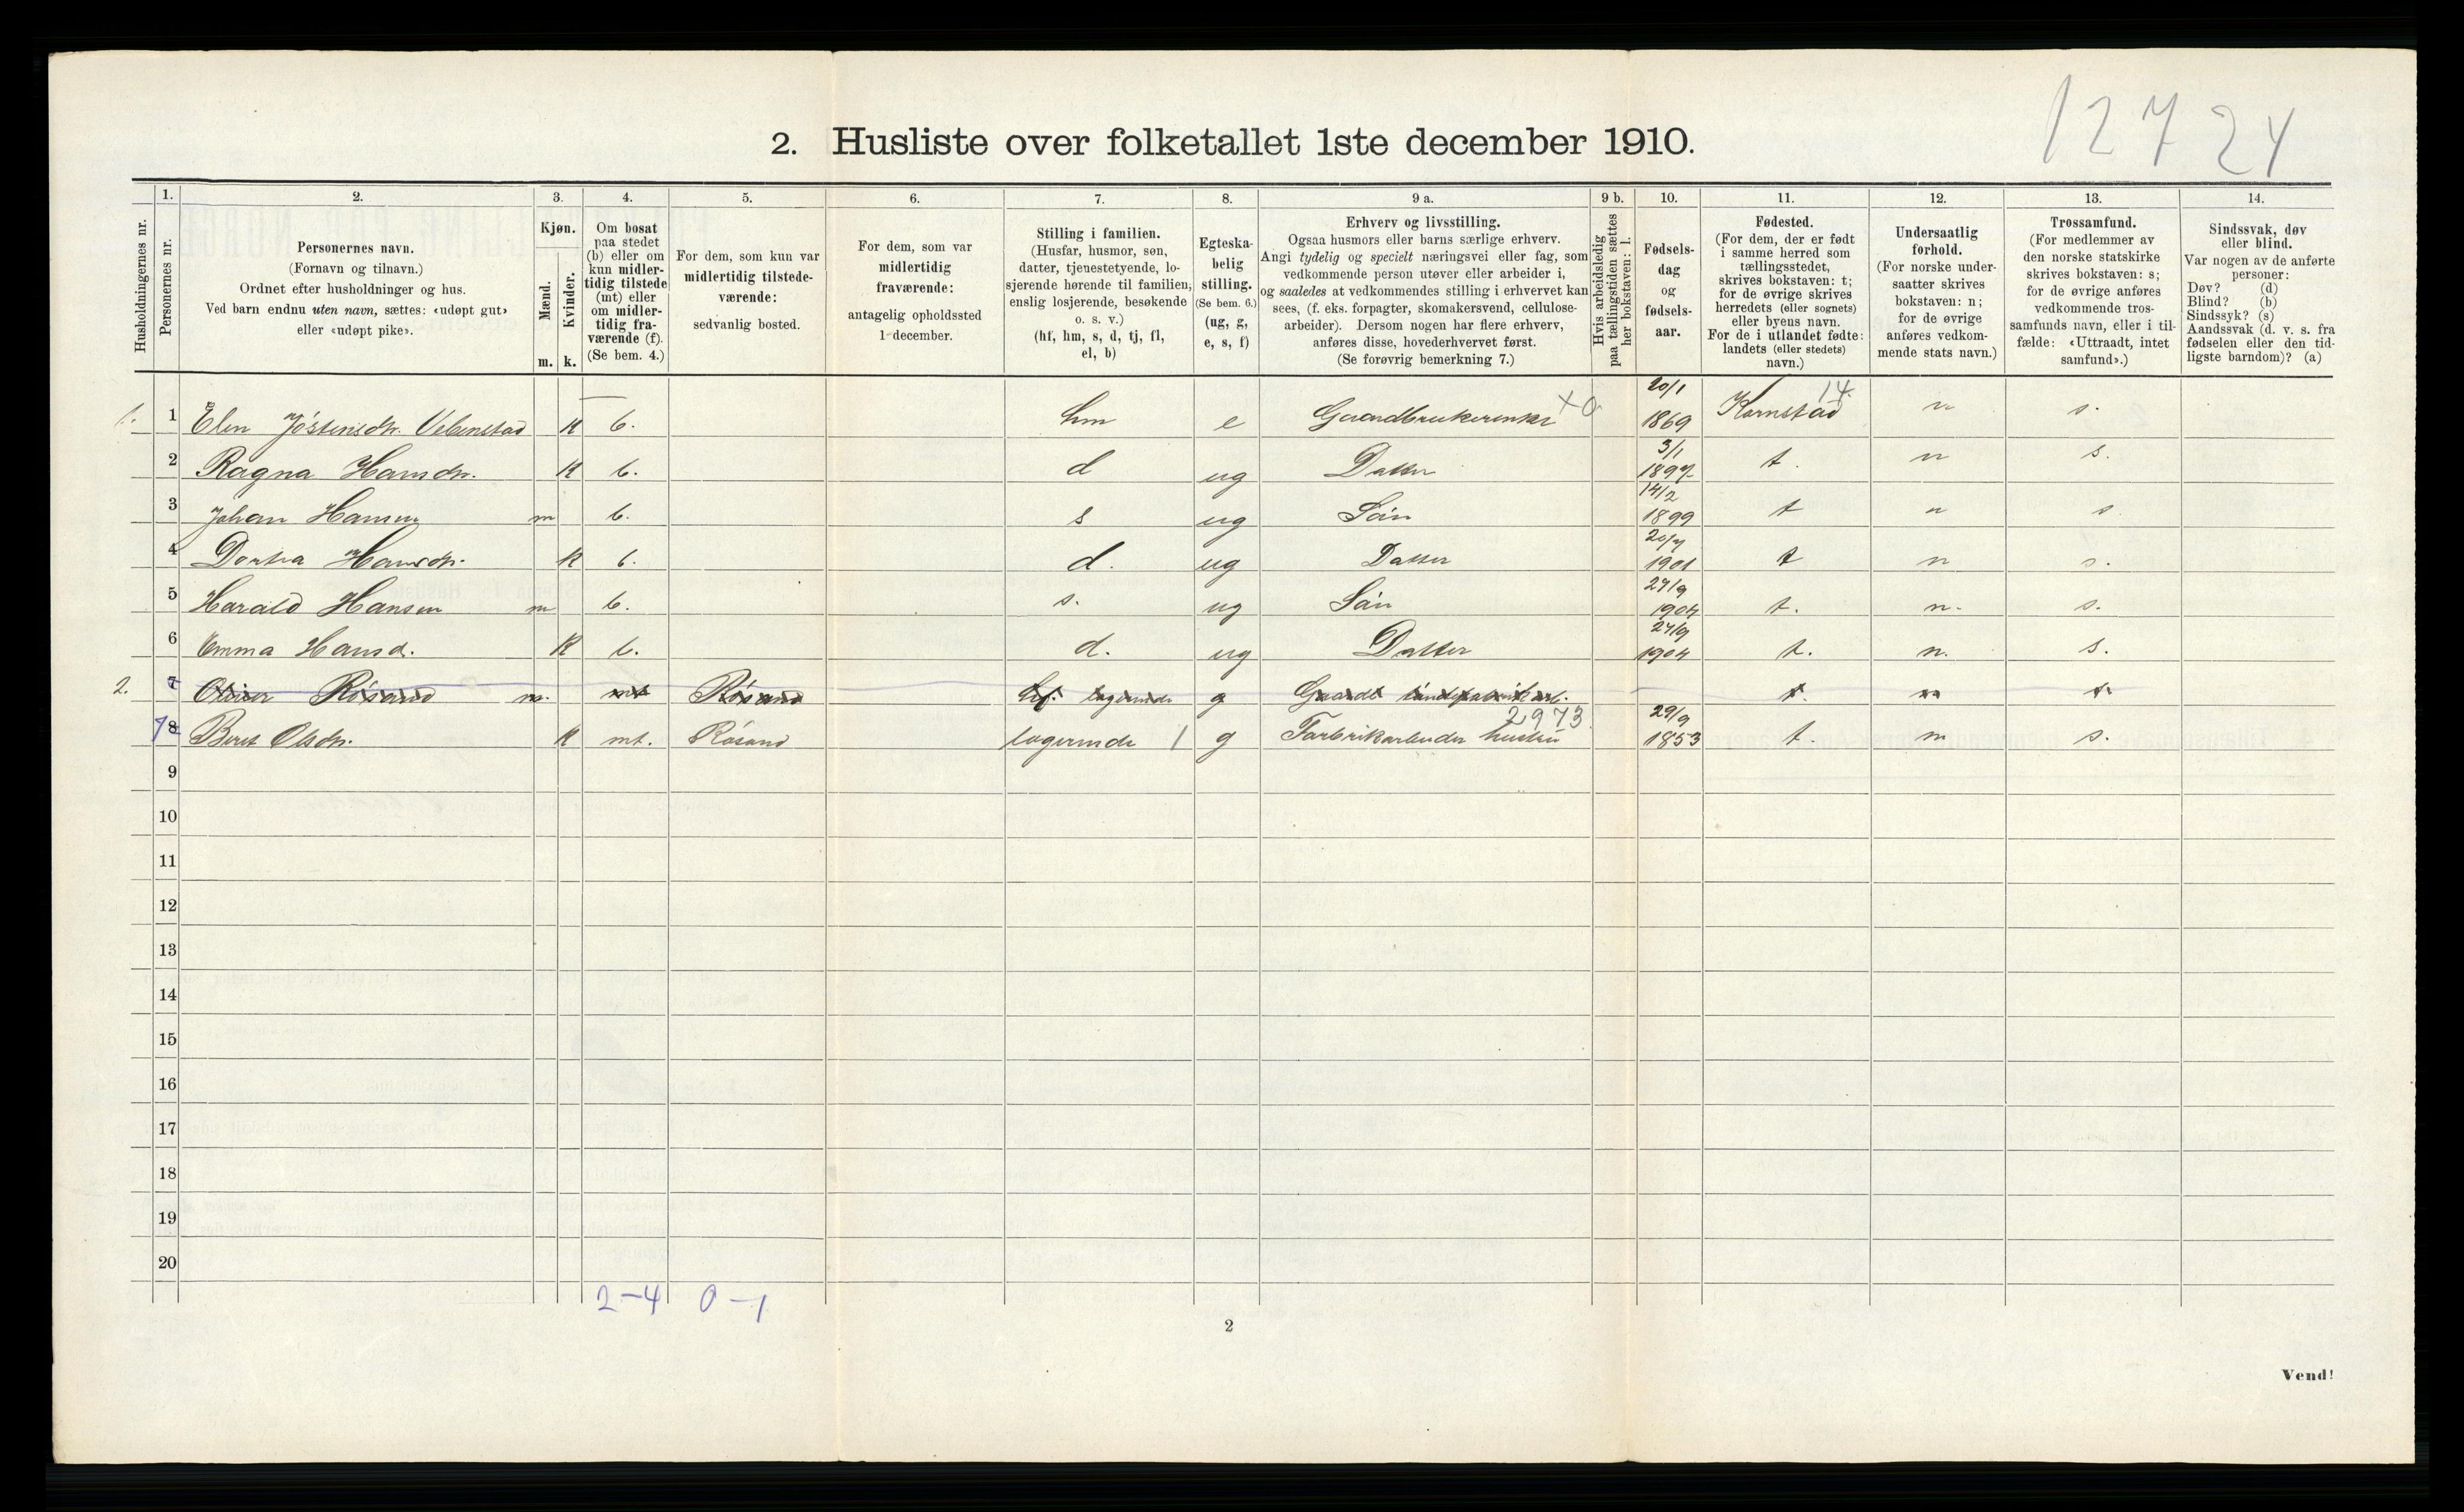 12724
2. Husliste over folketallet 1ste december 1910.
Husholdningernes nr.
1.
Personernes nr.
2.
Personernes navn.
(Fornavn og tilnavn.)
Ordnet efter husholdninger og hus.
Ved barn endnu uten navn, sættes: «udøpt gut»
eller «udøpt pike».
3.
Kjøn.
Mænd.
Kvinder.
m. k.
4.
Om bosat
paa stedet
(b) eller om
kun midler-
tidig tilstede
(mt) eller
om midler-
tidig fra-
værende (f).
(Se bem. 4.)
5.
For dem, som kun var
midlertidig tilstede-
værende:
sedvanlig bosted.
6.
For dem, som var
midlertidig
fraværende:
antagelig opholdssted
1 december.
7.
Stilling i familien.
(Husfar, husmor, søn,
datter, tjenestetyende, lo-
sjerende hørende til familien,
enslig losjerende, besøkende
o. s. v.)
(hf, hm, s, d, tj, fl,
el, b)
8.
Egteska-
belig
stilling.
(Se bem. 6.)
(ug, g,
e, s, f)
9 a.
Erhverv og livsstilling.
Ogsaa husmors eller barns særlige erhverv.
Angi tydelig og specielt næringsvei eller fag, som
vedkommende person utøver eller arbeider i,
og saaledes at vedkommendes stilling i erhvervet kan
sees, (f. eks. forpagter, skomakersvend, cellulose-
arbeider). Dersom nogen har flere erhverv,
anføres disse, hovederhvervet først.
(Se forøvrig bemerkning 7.)
9 b.
Hvis arbeidsledig
paa tællingstiden sættes
her bokstaven: l.
10.
Fødsels-
dag
og
fødsels-
aar.
11.
Fødested.
(For dem, der er født
i samme herred som
tællingsstedet,
skrives bokstaven: t;
for de øvrige skrives
herredets (eller sognets)
eller byens navn.
For de i utlandet fødte:
landets (eller stedets)
navn.)
12.
Undersaatlig
forhold.
(For norske under-
saatter skrives
bokstaven: n;
for de øvrige
anføres vedkom-
mende stats navn.)
13.
Trossamfund.
(For medlemmer av
den norske statskirke
skrives bokstaven: s;
for de øvrige anføres
vedkommende tros-
samfunds navn, eller i til-
fælde: «Uttraadt, intet
samfund».)
14.
Sindssvak, døv
eller blind.
Var nogen av de anførte
personer:
Døv? (d)
Blind? (b)
Sindssyk? (s)
Aandssvak (d. v. s. fra
fødselen eller den tid-
ligste barndom)? (a)
1. 1 Elen Jöstensdtr. K b. hm e Gaardbrukerenke x0 20/1 1869 Kornstad 14 n s.
2 Ragna Hansdtr. K b. d ug Datter 3/1 1897 t. n s.
3 Johan Hansen m b. s ug Sön 14/2 1899 t n s
4 Dortea Hansdtr. K b. d. ug Datter 20/7 1901 t n s.
5 Harald Hansen m b. s. ug Sön 27/9 1904 t. n. s.
6 Emma Hansd. K b. d. ug Datter 27/9 1904 t. n. s.
2. 7 Rösand m. mt Rösand hf. logerende g t. n s.
7 8 Beret Olsdtr. K mt. Rösand logerende 1 g Farbrikarbeider hustru 2973 29/9 1853 t. n s.
9
10
11
12
13
14
15
16
17
18
19
20
2-4 0-1
2
Vend!